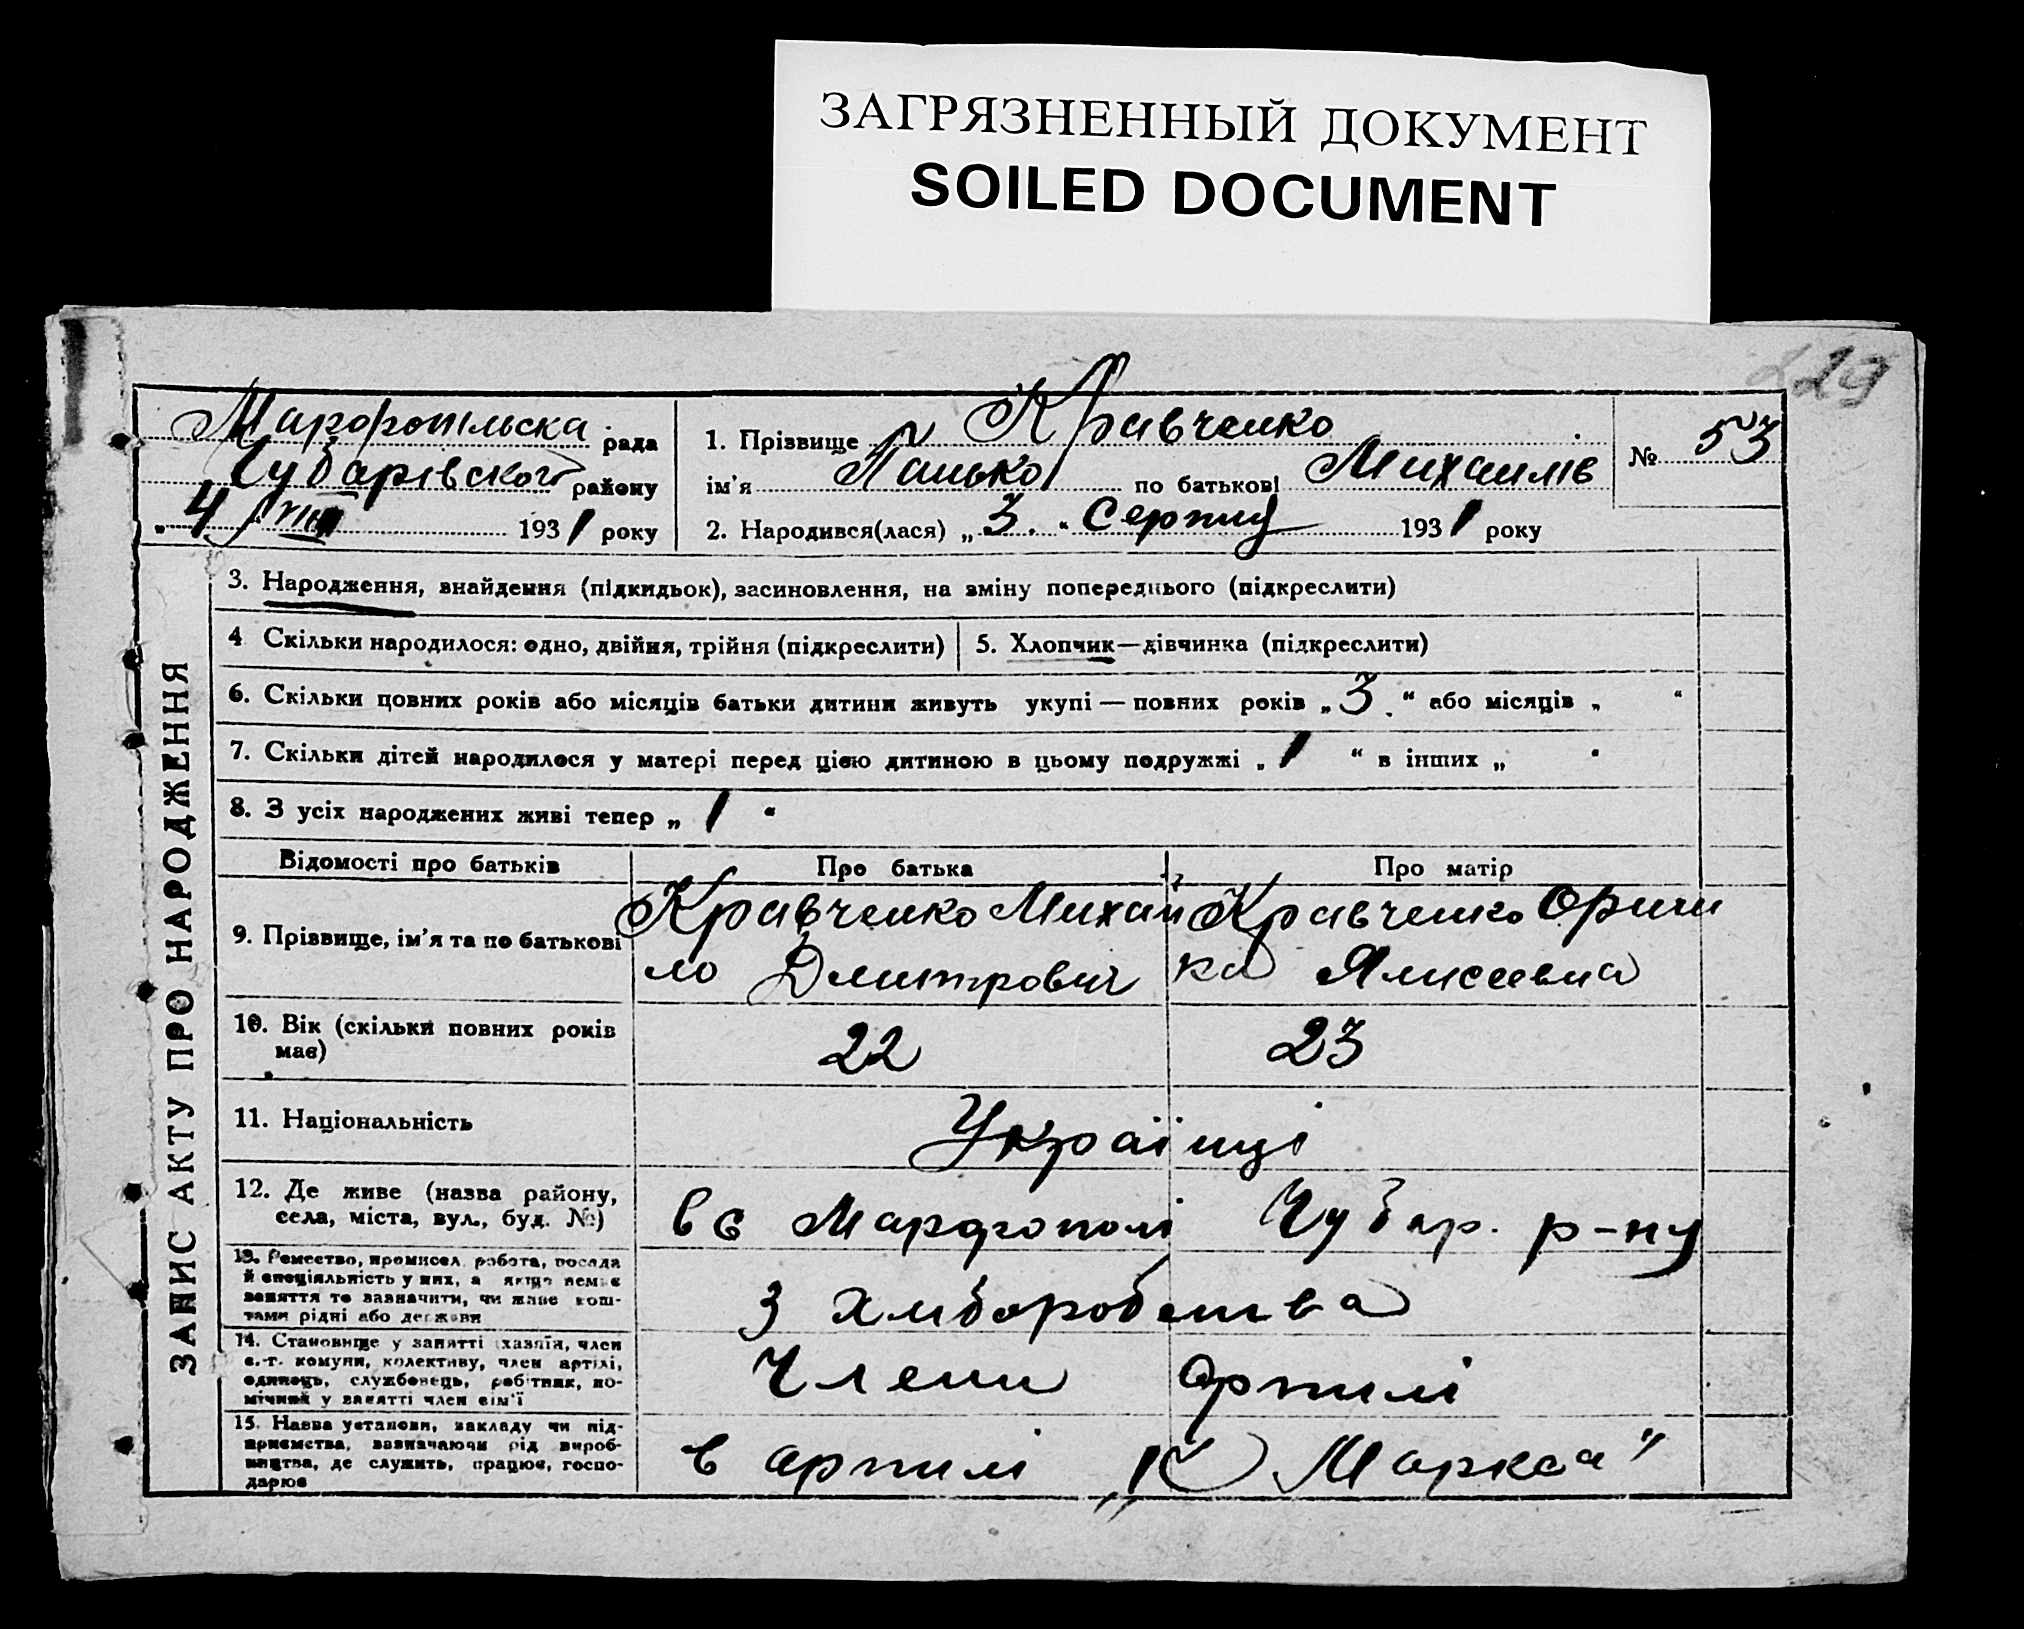 ЗАГРЯЗНЕННЫЙ ДОКУМЕНТ
SOILED DOCUMENT
229
Марфопільська рада
Чубарівского району
„ 4 " VIII 1931 року
1. Прізвище Кравченко
ім'я Панько по батькові Михаилів
№ 53
2. Народився(лася) „ 3. " Серпня 1931 року
ЗАПИС АКТУ ПРО НАРОДЖЕННЯ
3. Народження, внайдення (підкидьок), засиновлення, на зміну попереднього (підкреслити)
4 Скільки народилося: одно, двійня, трійня (підкреслити)
5. Хлопчик—дівчинка (підкреслити)
6. Скільки повних років або місяців батьки дитини живуть укупі — повних років „ 3. " або місяців „ "
7. Скільки дітей народилося у матері перед цією дитиною в цьому подружжі „ 1 " в інших „ "
8. З усіх народжених живі тепер „ 1 "
Відомості про батьків Про батька Про матір
9. Прізвище, ім'я та по батькові
Кравченко Михай
ло Дмитрович
Кравченко Орин
ка Ялисеевна
10. Вік (скільки повних років
має)
22 23
11. Національність
Українці
12. Де живе (назва району,
села, міста, вул., буд. №)
в с Марфополі Чубар. р-ну
13. Ремество, промисел, робота, посада
й спеціяльність у них, а якщо немає
заняття то зазначити, чи живе кош-
тами рідні або держави
З хліборобства
14. Становище у занятті (хазяїн, член
с.-г. комуни, колективу, член артілі,
одинець, службовець, робітник, по-
мічний у занятті член сім'ї
Члени Артилі
15. Назва установи, закладу чи під-
приємства, зазначаючи рід вироб-
ництва, де служить, працює, госпо-
дарює
в артилі „К Маркса"